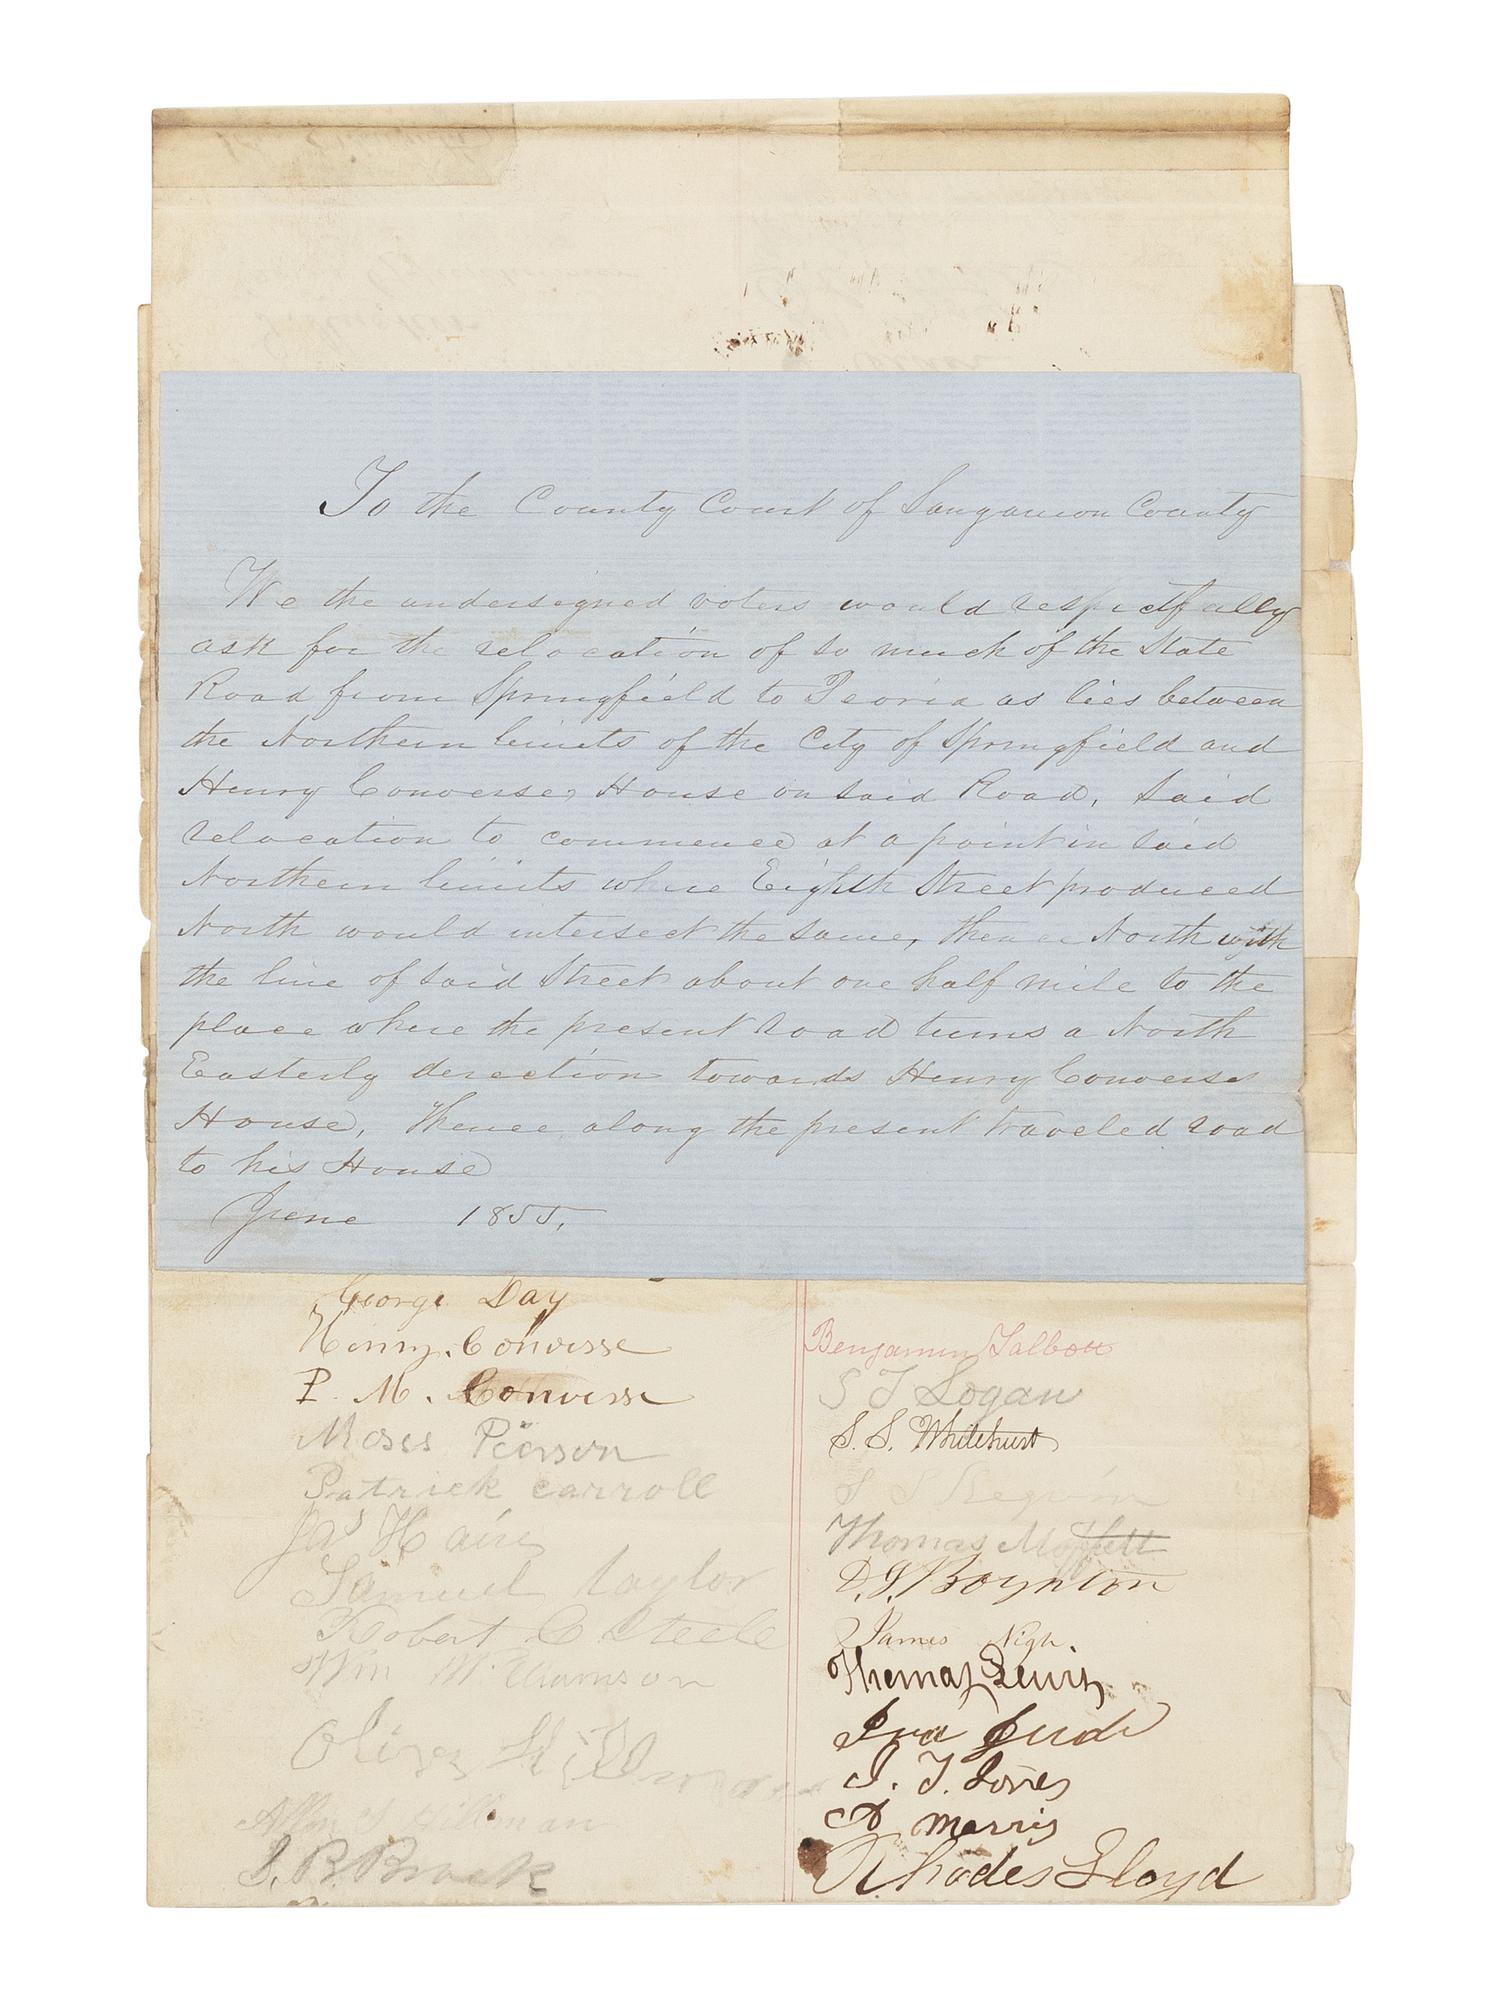 To the County Court of Sangamon County
We the undersigned voters would respectfully
ask for the relocation of so much of the State
Road from Springfield to Peoria as lies between
the Northern limits of the City of Springfield and
Henry Converses House on said Road, Said
relocation to commence at a point in said
Northern limits where Eighth Street produced
North would intersect the same, thence North with
the line of said Street about one half mile to the
place where the present road turns a North
Easterly derection towards Henry Converses
House, thence along the present traveled road
to his House
June 1855.
George Day
Henry Converse
P. M. Converse
Moses Pierson
Patrick Carroll
Jas Haire
Samuel Taylor
Robert C Steele
Wm
Oliver
Hillman
Benjamin Talbott
S T Logan
S. S. Whitehurst
Thomas Moffett
D. J. Boynton
James
Thomas Lewis
Ira Jude
J. T. Jones
A Morris
Rhodes Lloyd